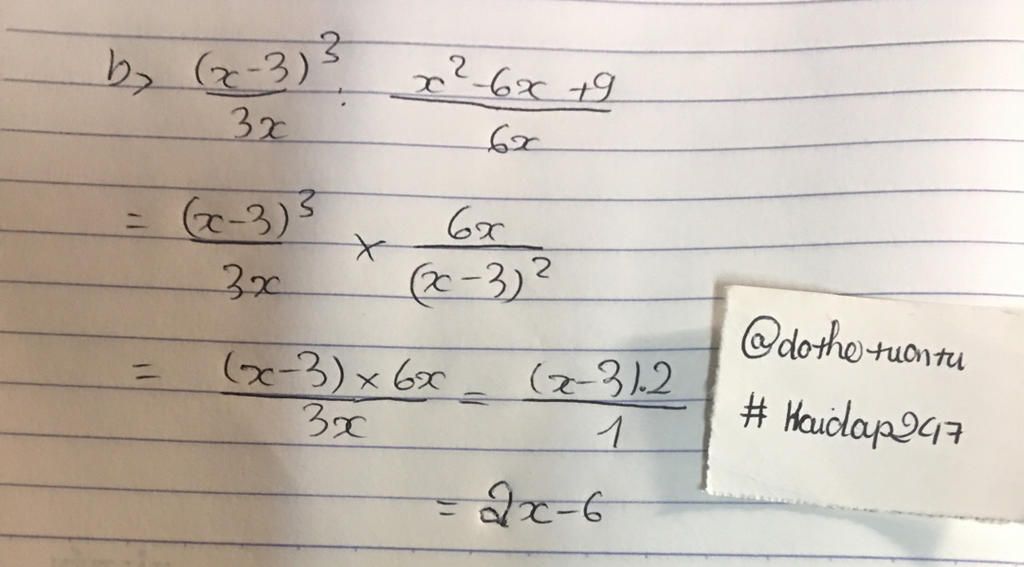 b> (x-3)³/3x : x²-6x+9/6x
= (x-3)³/3x × 6x/(x-3)²
= (x-3)×6x/3x = (x-3).2/1
= 2x-6
@dothetuantu
# Haidap247